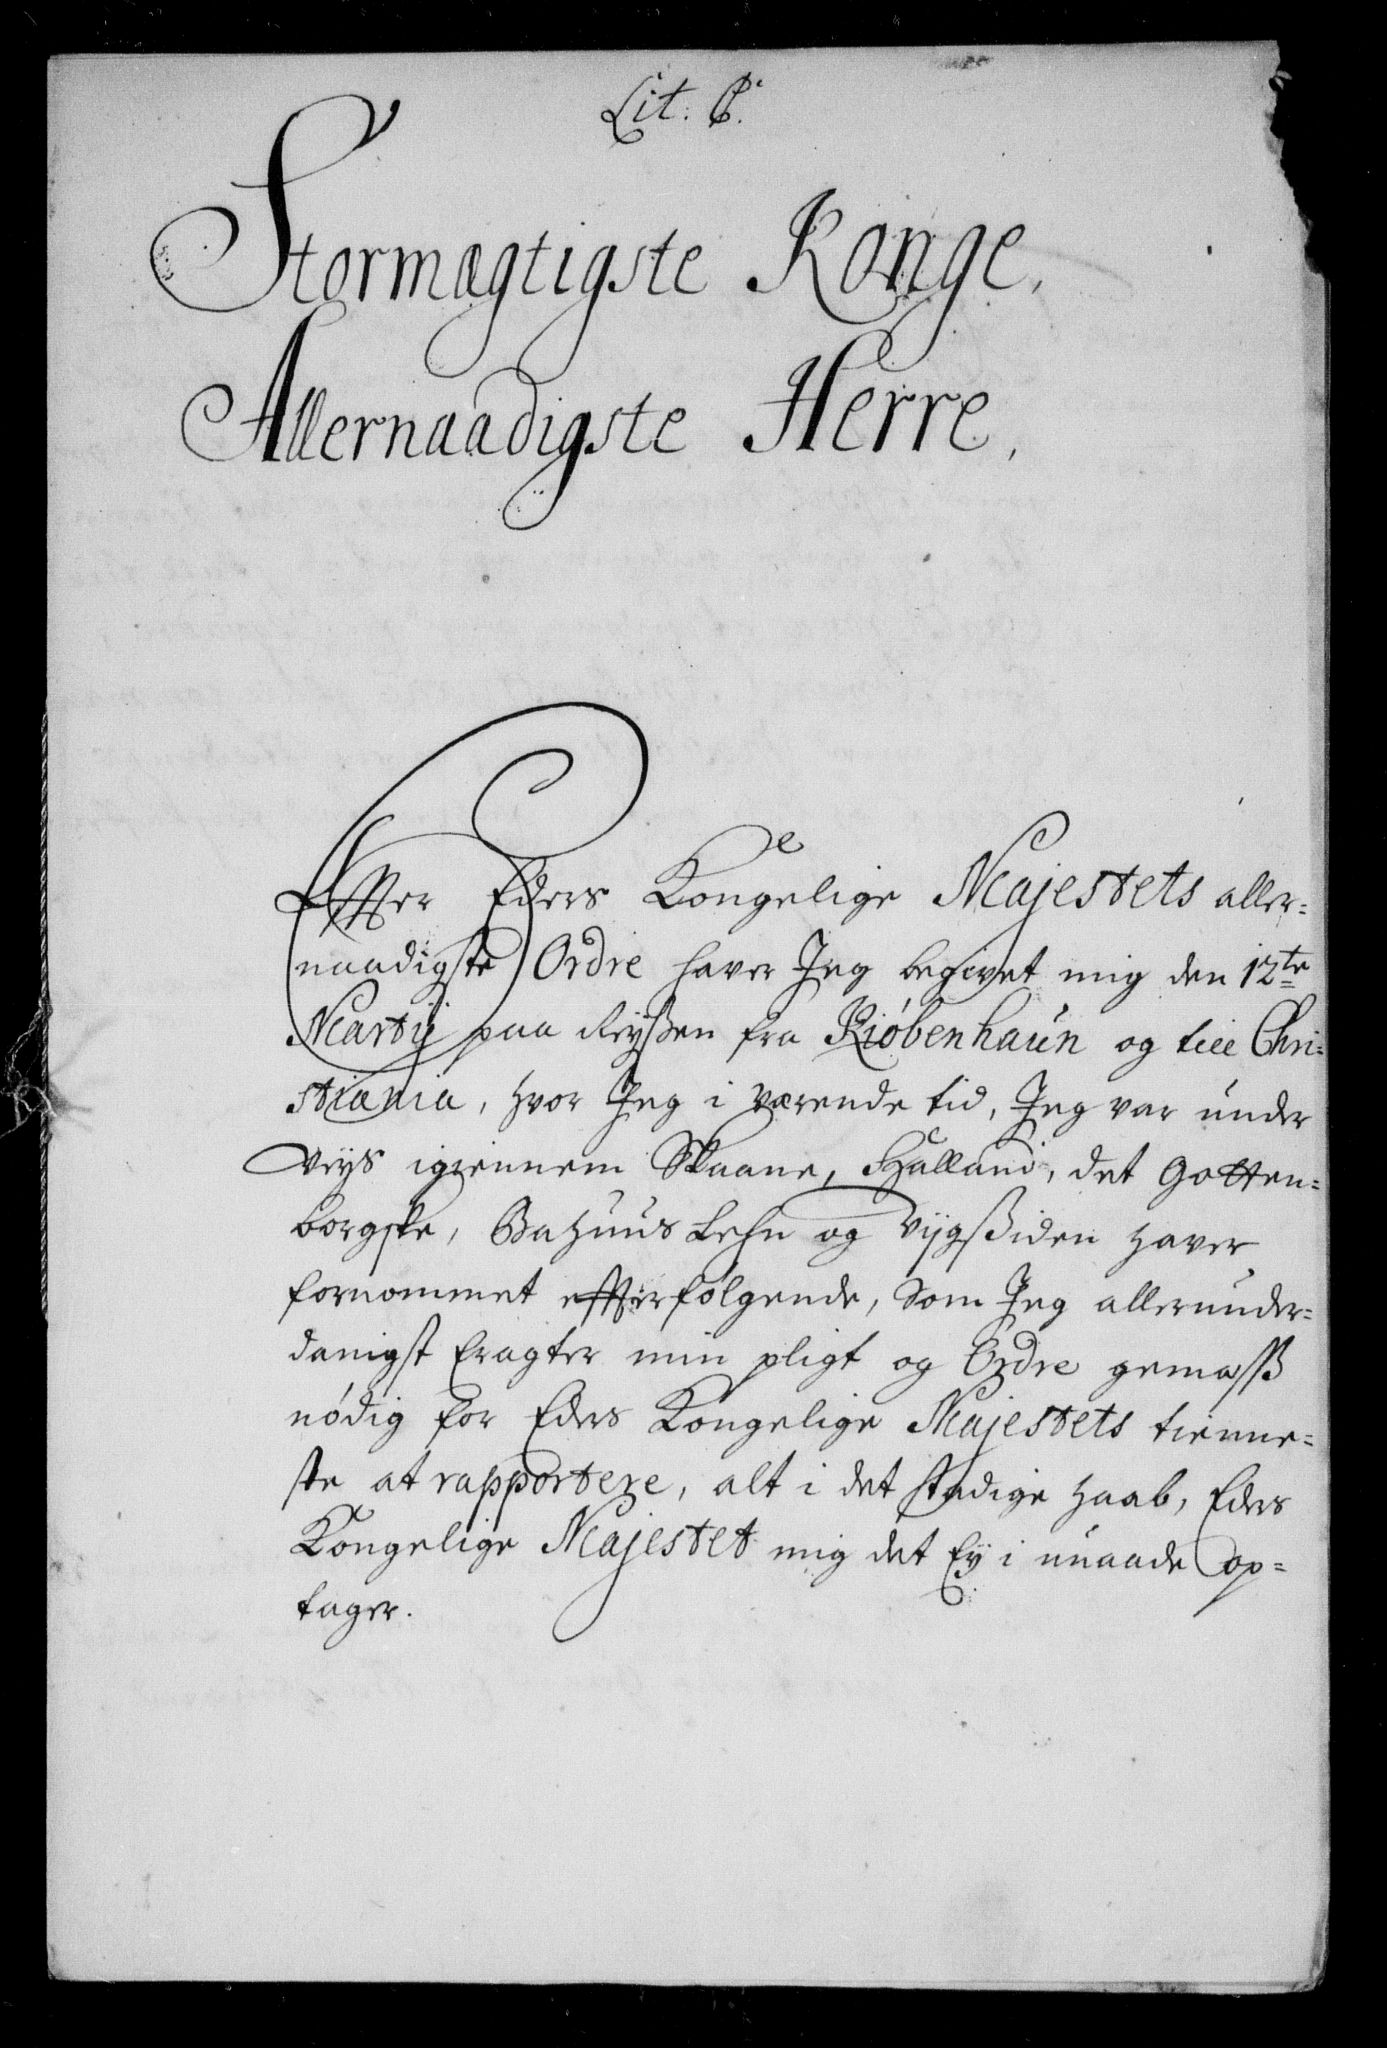 Lit. C.
Stormægtigste Konge,
Allernaadigste Herre,
Effter Eders Kongelige Majestets aller=
naadigste Ordre haver Jeg begivet mig den 12te
Martij paa Reyßen fra Kiøbenhaun og till Chri=
stiania, hvor Jeg i værende tid, Jeg var under
Veys igiennem Skaane, Halland, det Gotten=
borgske, Bahuus Lehn og Vygßiden haver
fornommet effterfølgende, som Jeg allerunder=
danigst Eragter min pligt og Ordre gemæsß
nødig for Eders Kongelige Majestets tienne=
ste at rapportere, alt i det stadige haab, Eders
Kongelige Majestet mig det Ey i unaade op=
tager.